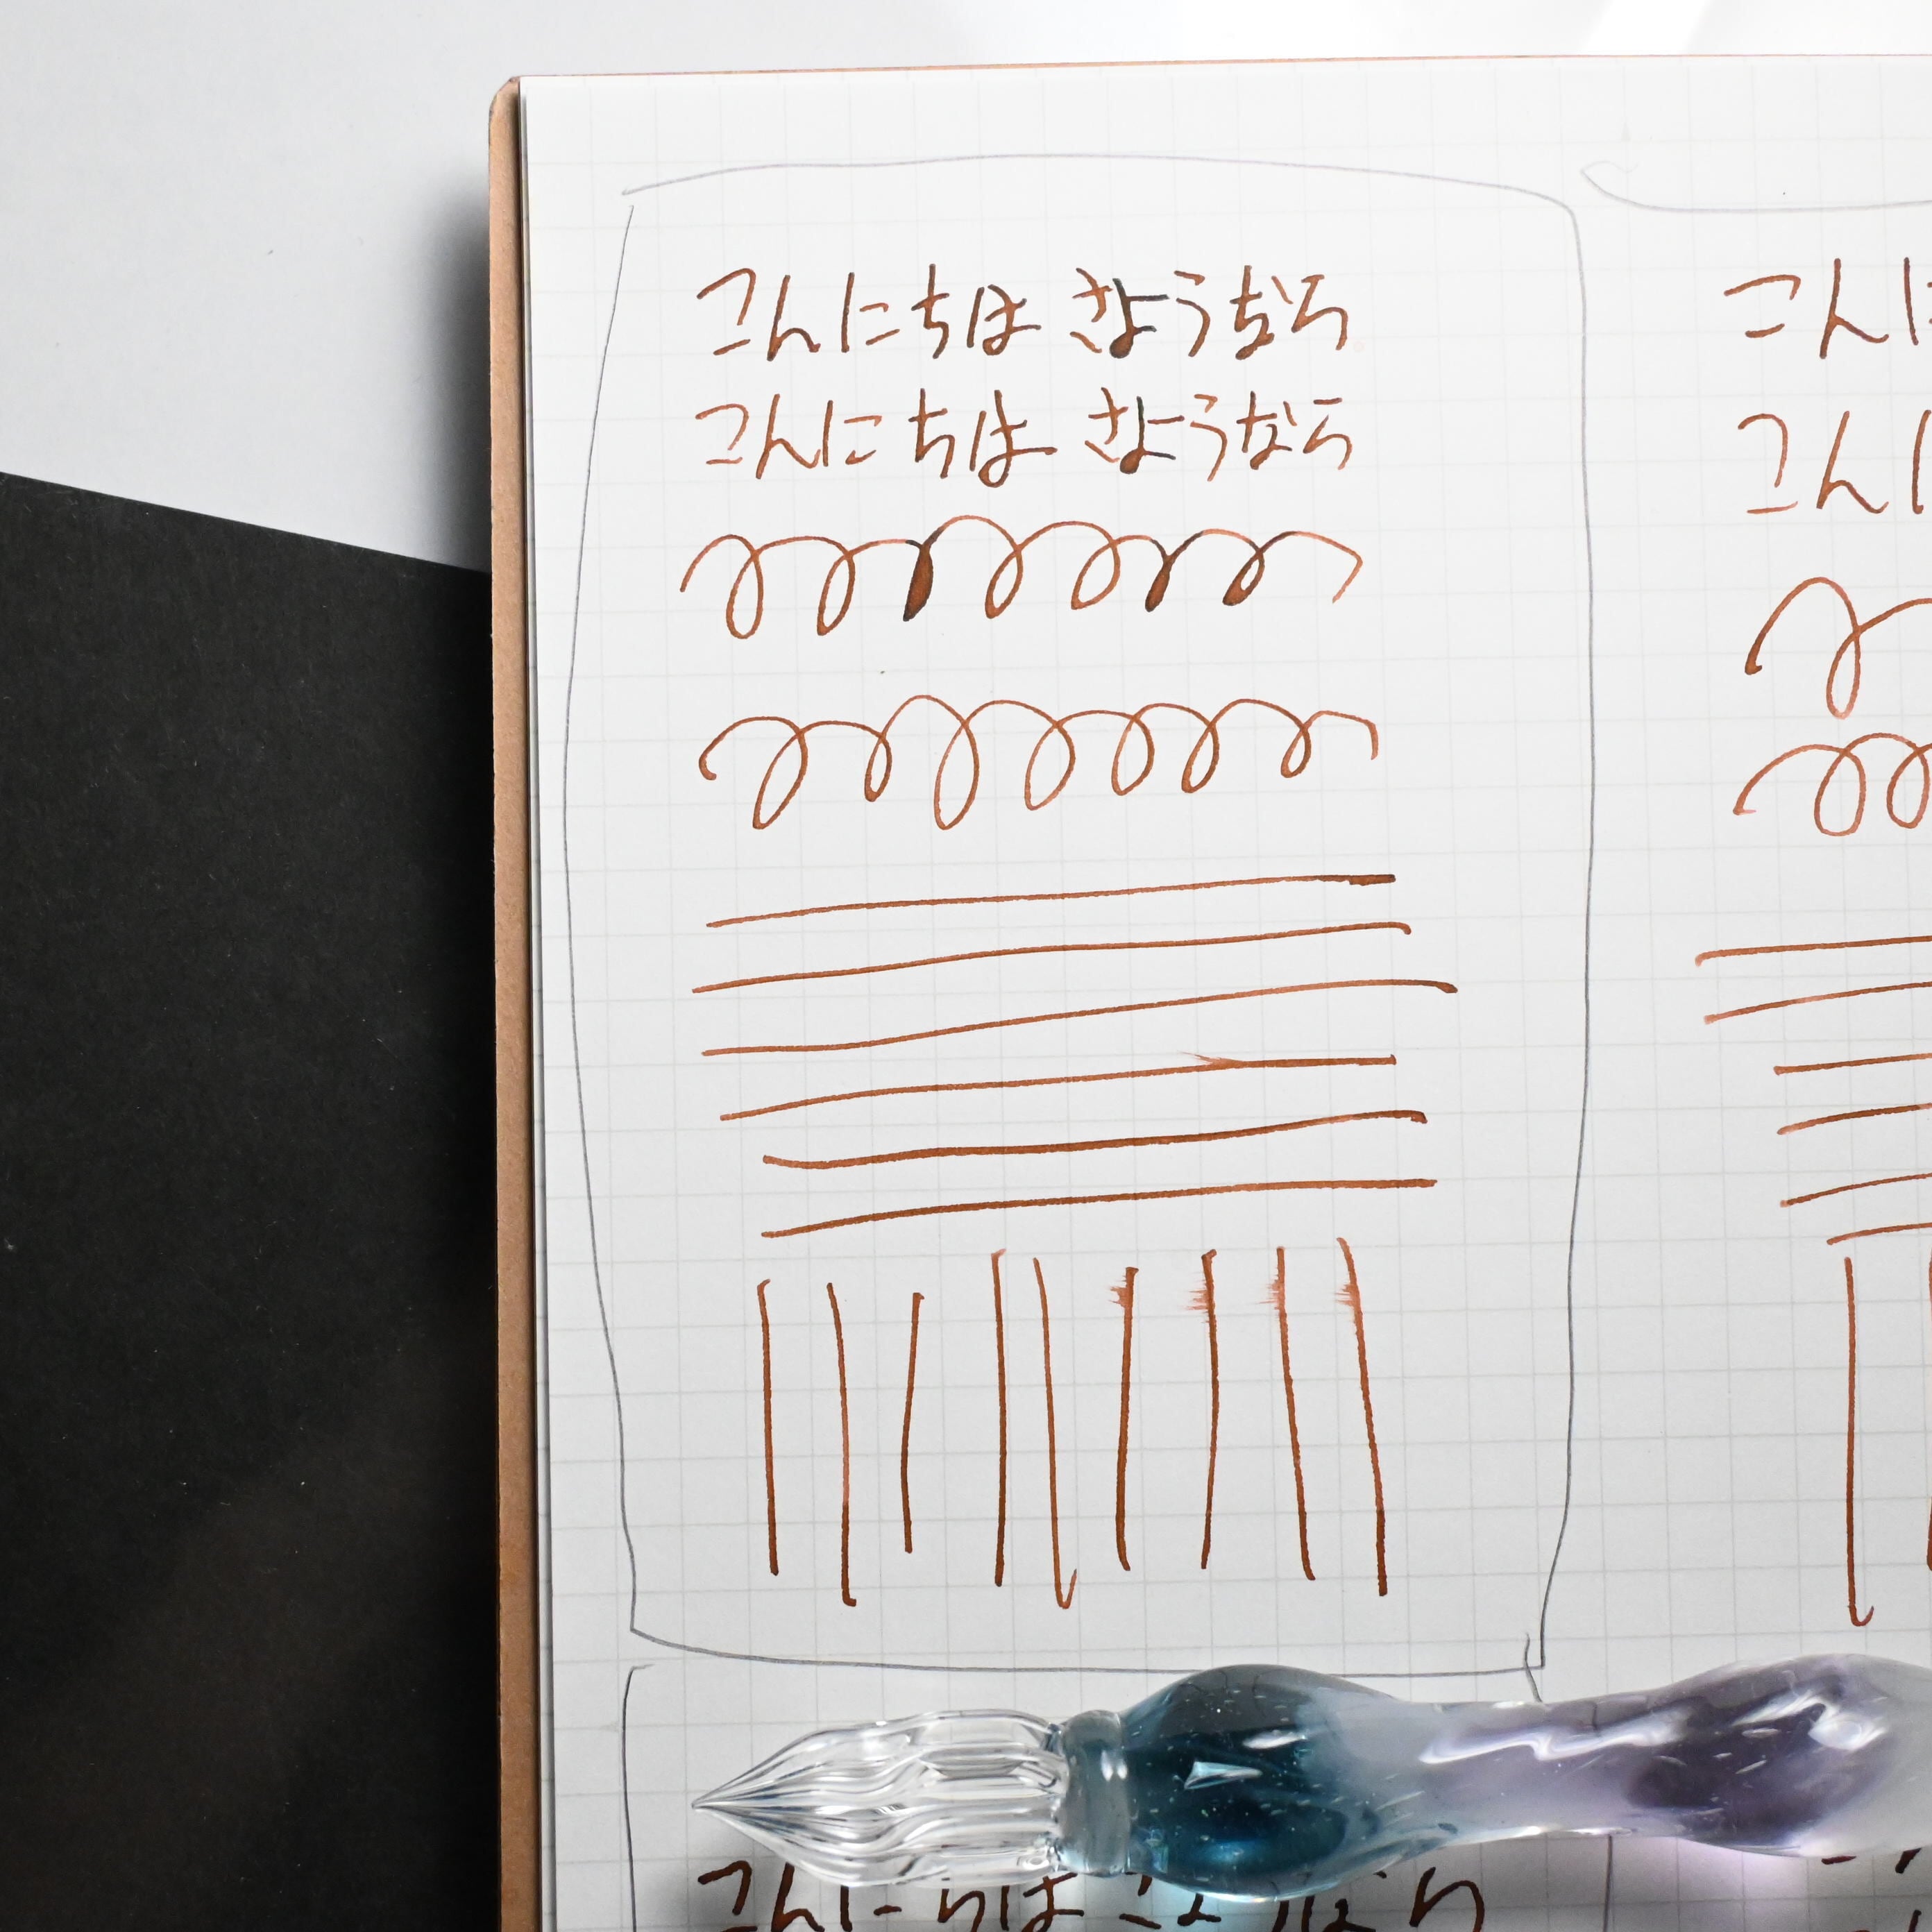 こんにちは さようなら
こんにちは さようなら
こんに
こんに
こんにちは さようなら